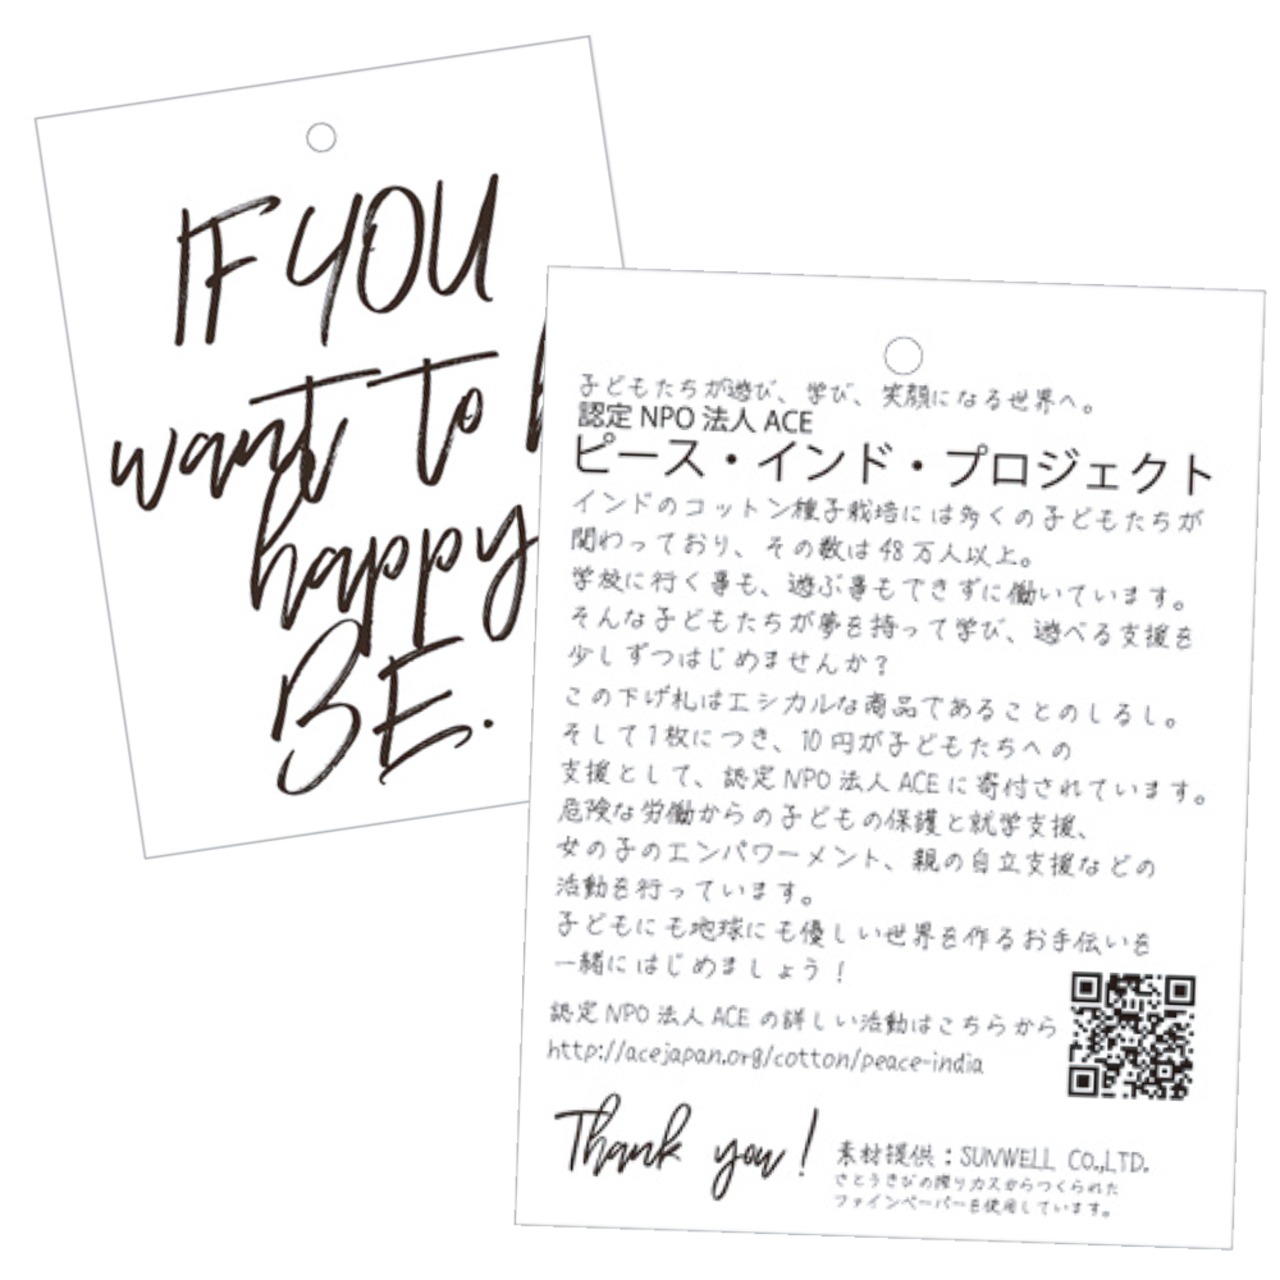 IF YOU
want to
happy
BE.
子どもたちが遊び、学び、笑顔になる世界へ。
認定 NPO 法人 ACE
ピース・インド・プロジェクト
インドのコットン種子栽培には多くの子どもたちが
関わっており、その数は 48 万人以上。
学校に行く事も、遊ぶ事もできずに働いています。
そんな子どもたちが夢を持って学び、遊べる支援を
少しずつはじめませんか？
この下げ札はエシカルな商品であることのしるし。
そして1枚につき、10 円が子どもたちへの
支援として、認定 NPO 法人 ACE に寄付されています。
危険な労働からの子どもの保護と就学支援、
女の子のエンパワーメント、親の自立支援などの
活動を行っています。
子どもにも地球にも優しい世界を作るお手伝いを
一緒にはじめましょう！
認定 NPO 法人 ACE の詳しい活動はこちらから
http://acejapan.org/cotton/peace-india
Thank you!
素材提供：SUNWELL CO.,LTD.
さとうきびの搾りカスからつくられた
ファインペーパーを使用しています。